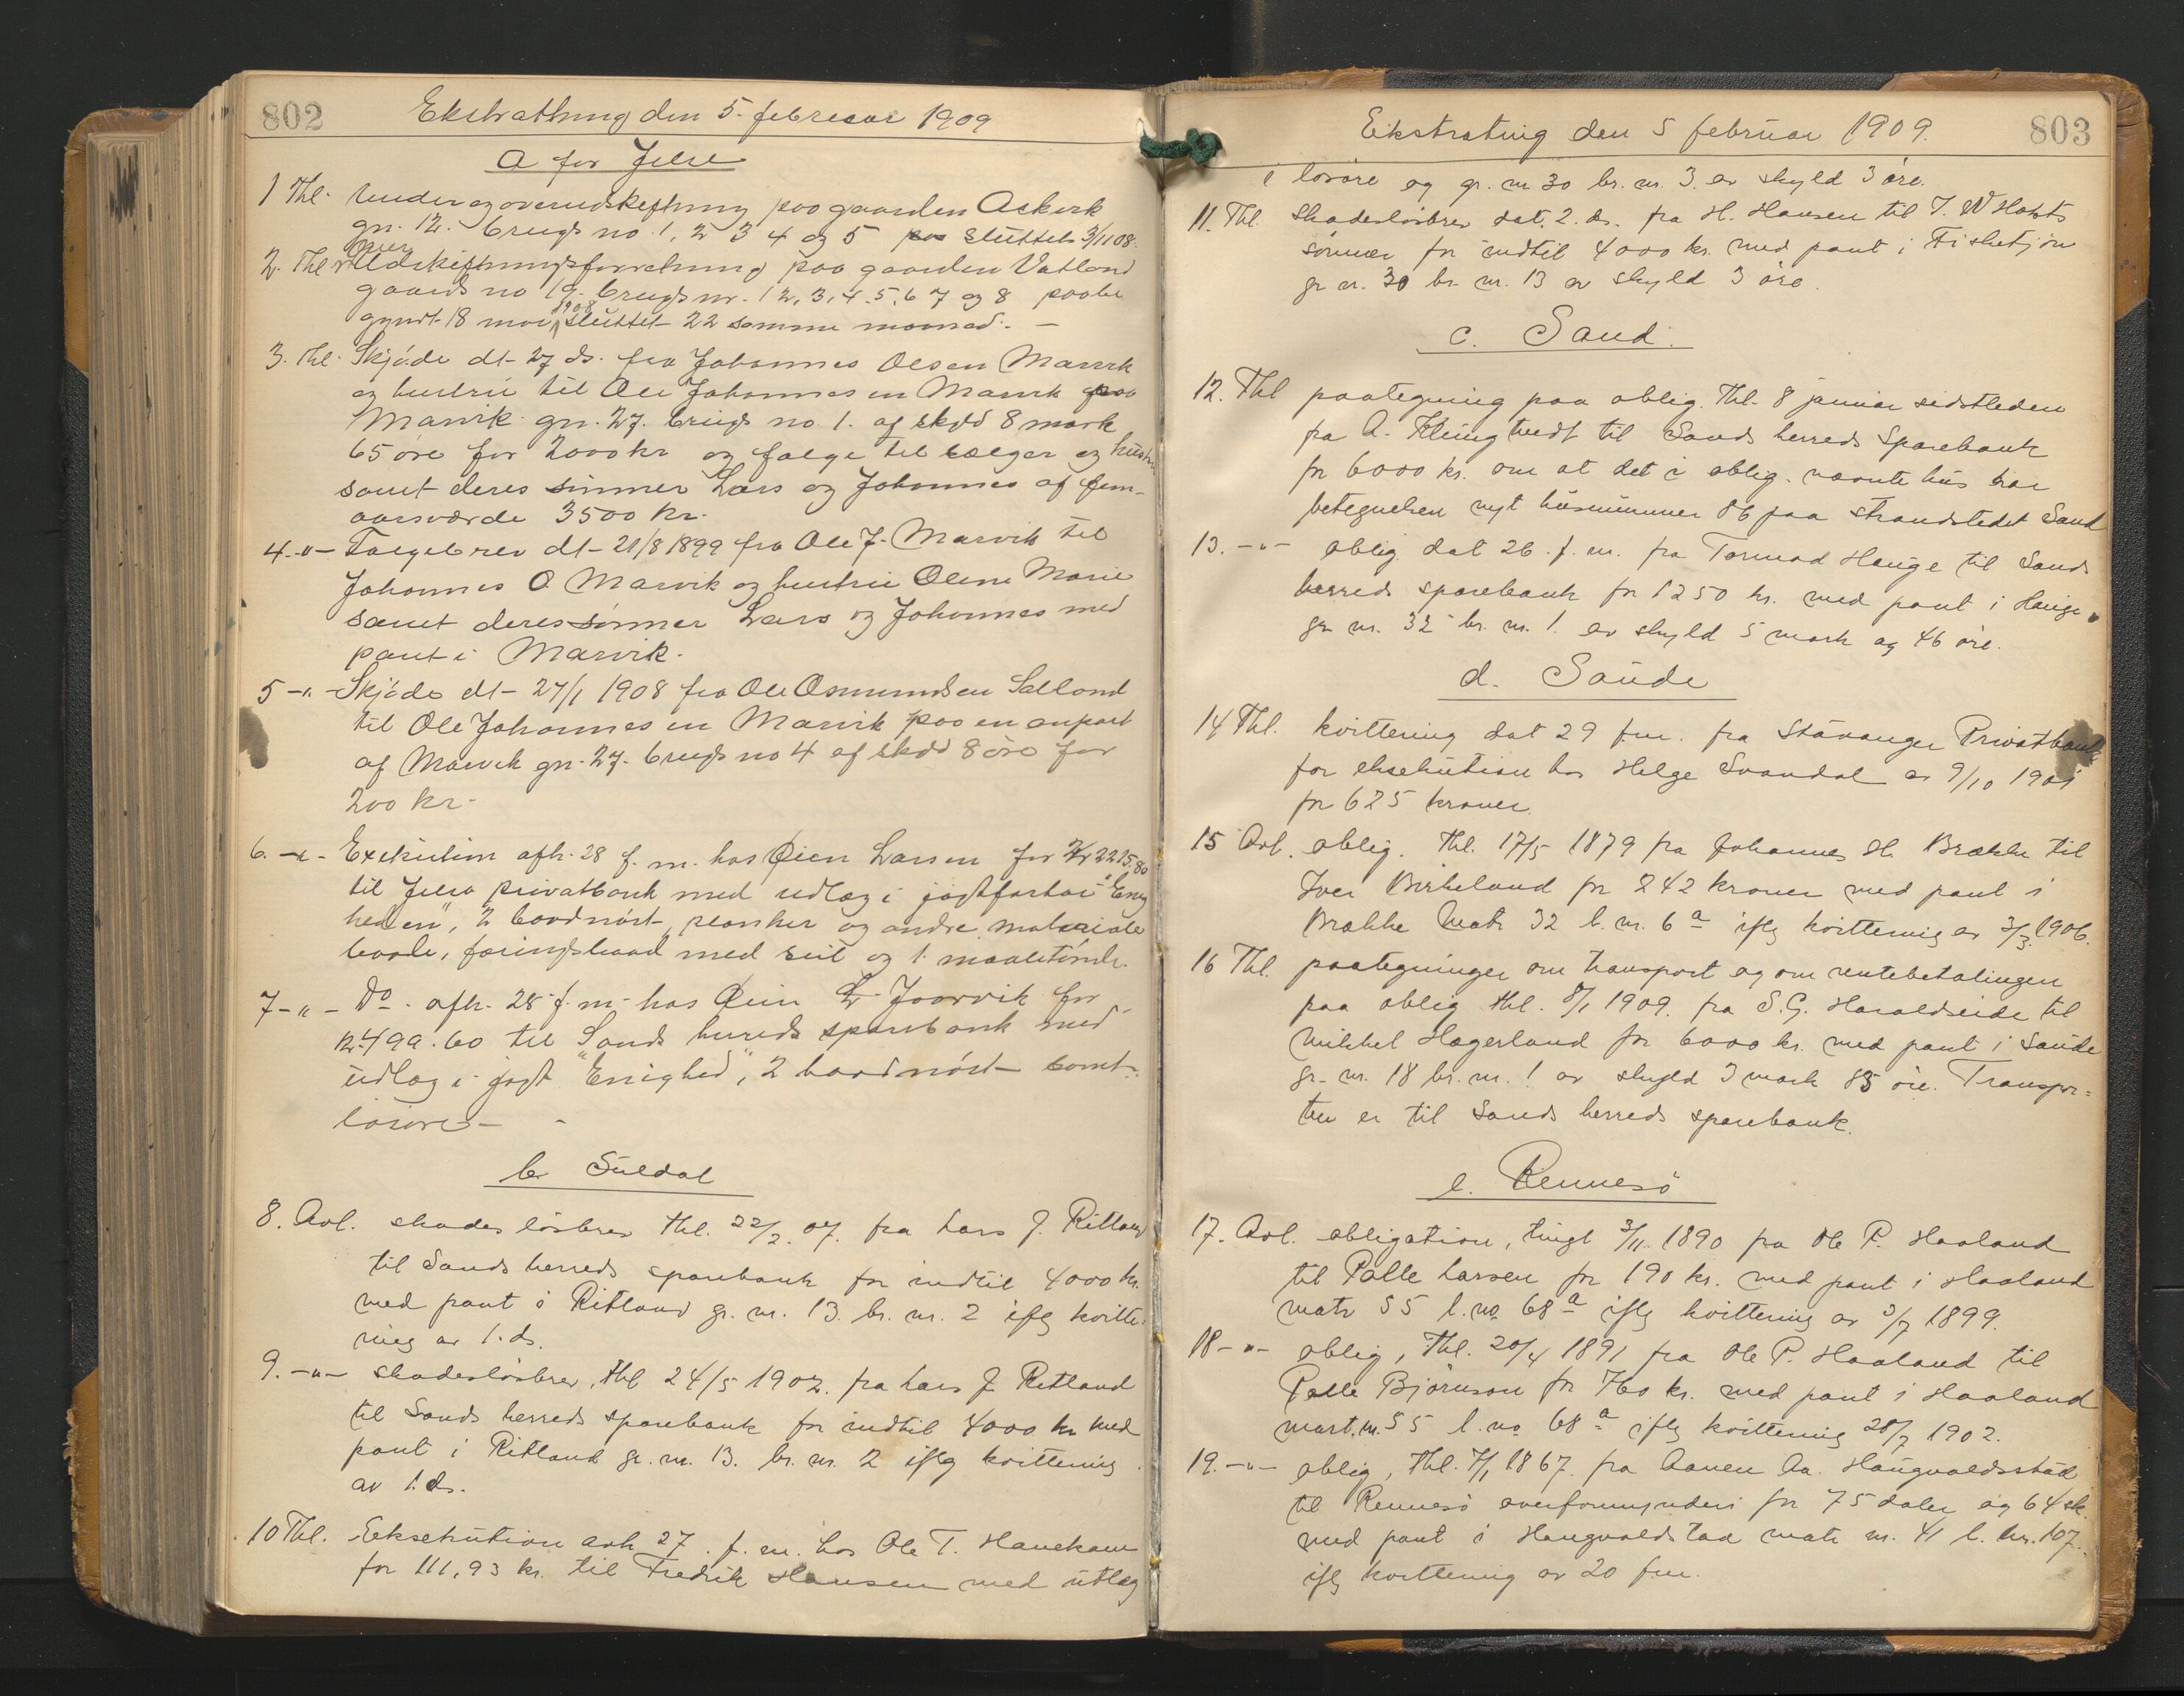 802
Ekstrathing den 5. februar 1909
a for Jelse
1 Thl. Under og overudskiftning paa gaarden Askvik
gn. 12. brugs no. 1, 2 3 4 og 5 sluttet 3/11 08.
2. Thl. Udskiftningsforretning paa gaarden Vatland
gaards no 19. brugs nr. 1 2, 3, 4. 5. 6 7 og 8 paabe
gyndt 18 mai 1908 sluttet 22 samme maaned. —
3. Thl. Skjøde dt 27 ds. fra Johannes Olsen Marvik
og hustru til Ole Johannesen Marvik paa
Marvik gn. 27. brugs no 1. af skyld 8 mark
65 øre for 2000 kr og følge til sælger og hustru
samt deres sønner Lars og Johannes af fem-
aarsværde 3500 kr.
4. -"- Følgebrev dt 21/8 1899 fra Ole J. Marvik til
Johannes O Marvik og hustru Olene Marie
samt deres sønner Lars og Johannes med
pant i Marvik.
5 -"- Skjøde dt 27/1 1908 fra Ole Osmundsen Sælland
til Ole Johannesen Marvik paa en anpart
af Marvik gn. 27. brugs no 4 af skyld 8 øre for
200 kr.
6. -"- Exekution afh. 28 f. m. hos Øien Larsen for kr 2215.80
til Jelsa privatbank med udlæg i jagtfartøi "Enig
heden", 2 baadnøst, planker og andre materiale
baade, færingsbaad med seil og 1 maaletønde.
7 -"- Do. afh. 28 f. m. hos Øien L. Joarvik for
kr. 499.60 til Sands hereds sparebank med
udlæg i jagt "Enighed", 2 baadnøst samt
løsøre -
b. Suldal
8. Avl. skadesløsbrev thl. 22/2. 07. fra Lars J. Ritland
til Sands herreds sparebank for indtil 4000 kr.
med pant i Ritland gr. nr. 13. br. nr. 2 iflg kvitte-
ring av 1. ds.
9. -"- skadesløsbrev, thl 24/5 1902. fra Lars J. Ritland
til Sands herreds sparebank for indtil 4000 kr med
pant i Ritland gr. nr. 13. br. nr. 2 iflg kvittering
av 1. ds.
10 Thl. Eeksekution avh 27. f. m. hos Ole T. Hanekam
for 111,93 kr. til Fredrik Hansen med utlæg
803
Eikstrating den 5 februar 1909.
i løsøre og gr. nr 30 br. nr. 3. av skyld 3 øre.
11. Thl. Skadesløsbrev dat. 2. ds. fra H. Hansen til T. W Holsts
sønner for indtil 4000 kr. med pant i Fisketjøn
gr nr. 30 br nr. 13 av skyld 3 øre.
c. Sand.
12. Thl paategning paa oblig. thl. 8 januar sidstleden
fra A. Klungtvedt til Sands herreds Sparebank
for 6000 kr. om at det i oblig. nævnte hus har
betegnelsen nyt husnummer 86 paa strandstedet Sand
13. -"- oblig dat 26. f. m. fra Tormod Hauge til Sands
herreds sparebank for 1250 kr. med pant i Hauge
gr nr. 32 br. nr. 1. av skyld 5 mark og 46 øre.
d. Saude
14 Thl. kvittering dat 29 f.m. fra Stavanger Privatbank
for eksekution hos Helge Svandal av 9/10 1901
for 625 kroner.
15 Avl. oblig. thl. 17/5 1879 fra Johannes H. Brække til
Iver Birkeland for 242 kroner med pant i
Brække Matr 32 l. nr. 6a iflg kvittering av 3/3. 1906.
16 Thl. paategninger om transport og om rentebetalingen
paa oblig thl. 8/1 1909. fra S. G. Haraldseide til
Mikkel Hægerland for 6000 kr. med pant i Saude
gr. nr. 18 br. nr. 1 av skyld 3 mark 85 øre. Transpor=
ten er til Sands herreds sparebank.
e. Rennesø
17. Avl. obligation, tingl 3/11. 1890 fra Ole P. Haaland
til Palle Larsen for 190 kr. med pant i Haaland
matr 55 l. no 68a iflg kvittering av 3/7 1899.
18 -"- oblig, thl. 20/4 1891 fra Ole P. Haaland til
Palle Bjørnson for 760 kr. med pant i Haaland
mart. nr. 55 l. no 68a iflg kvittering 28/7 1902.
19. -"- oblig, thl. 7/1 1867. fra Aanen Aa. Haugvaldsstad
til Rennesø overformynderi for 75 daler og 64 sk.
med pant i Haugvaldstad matr nr. 41 l. nr. 107.
iflg kvittering av 20 f.m.